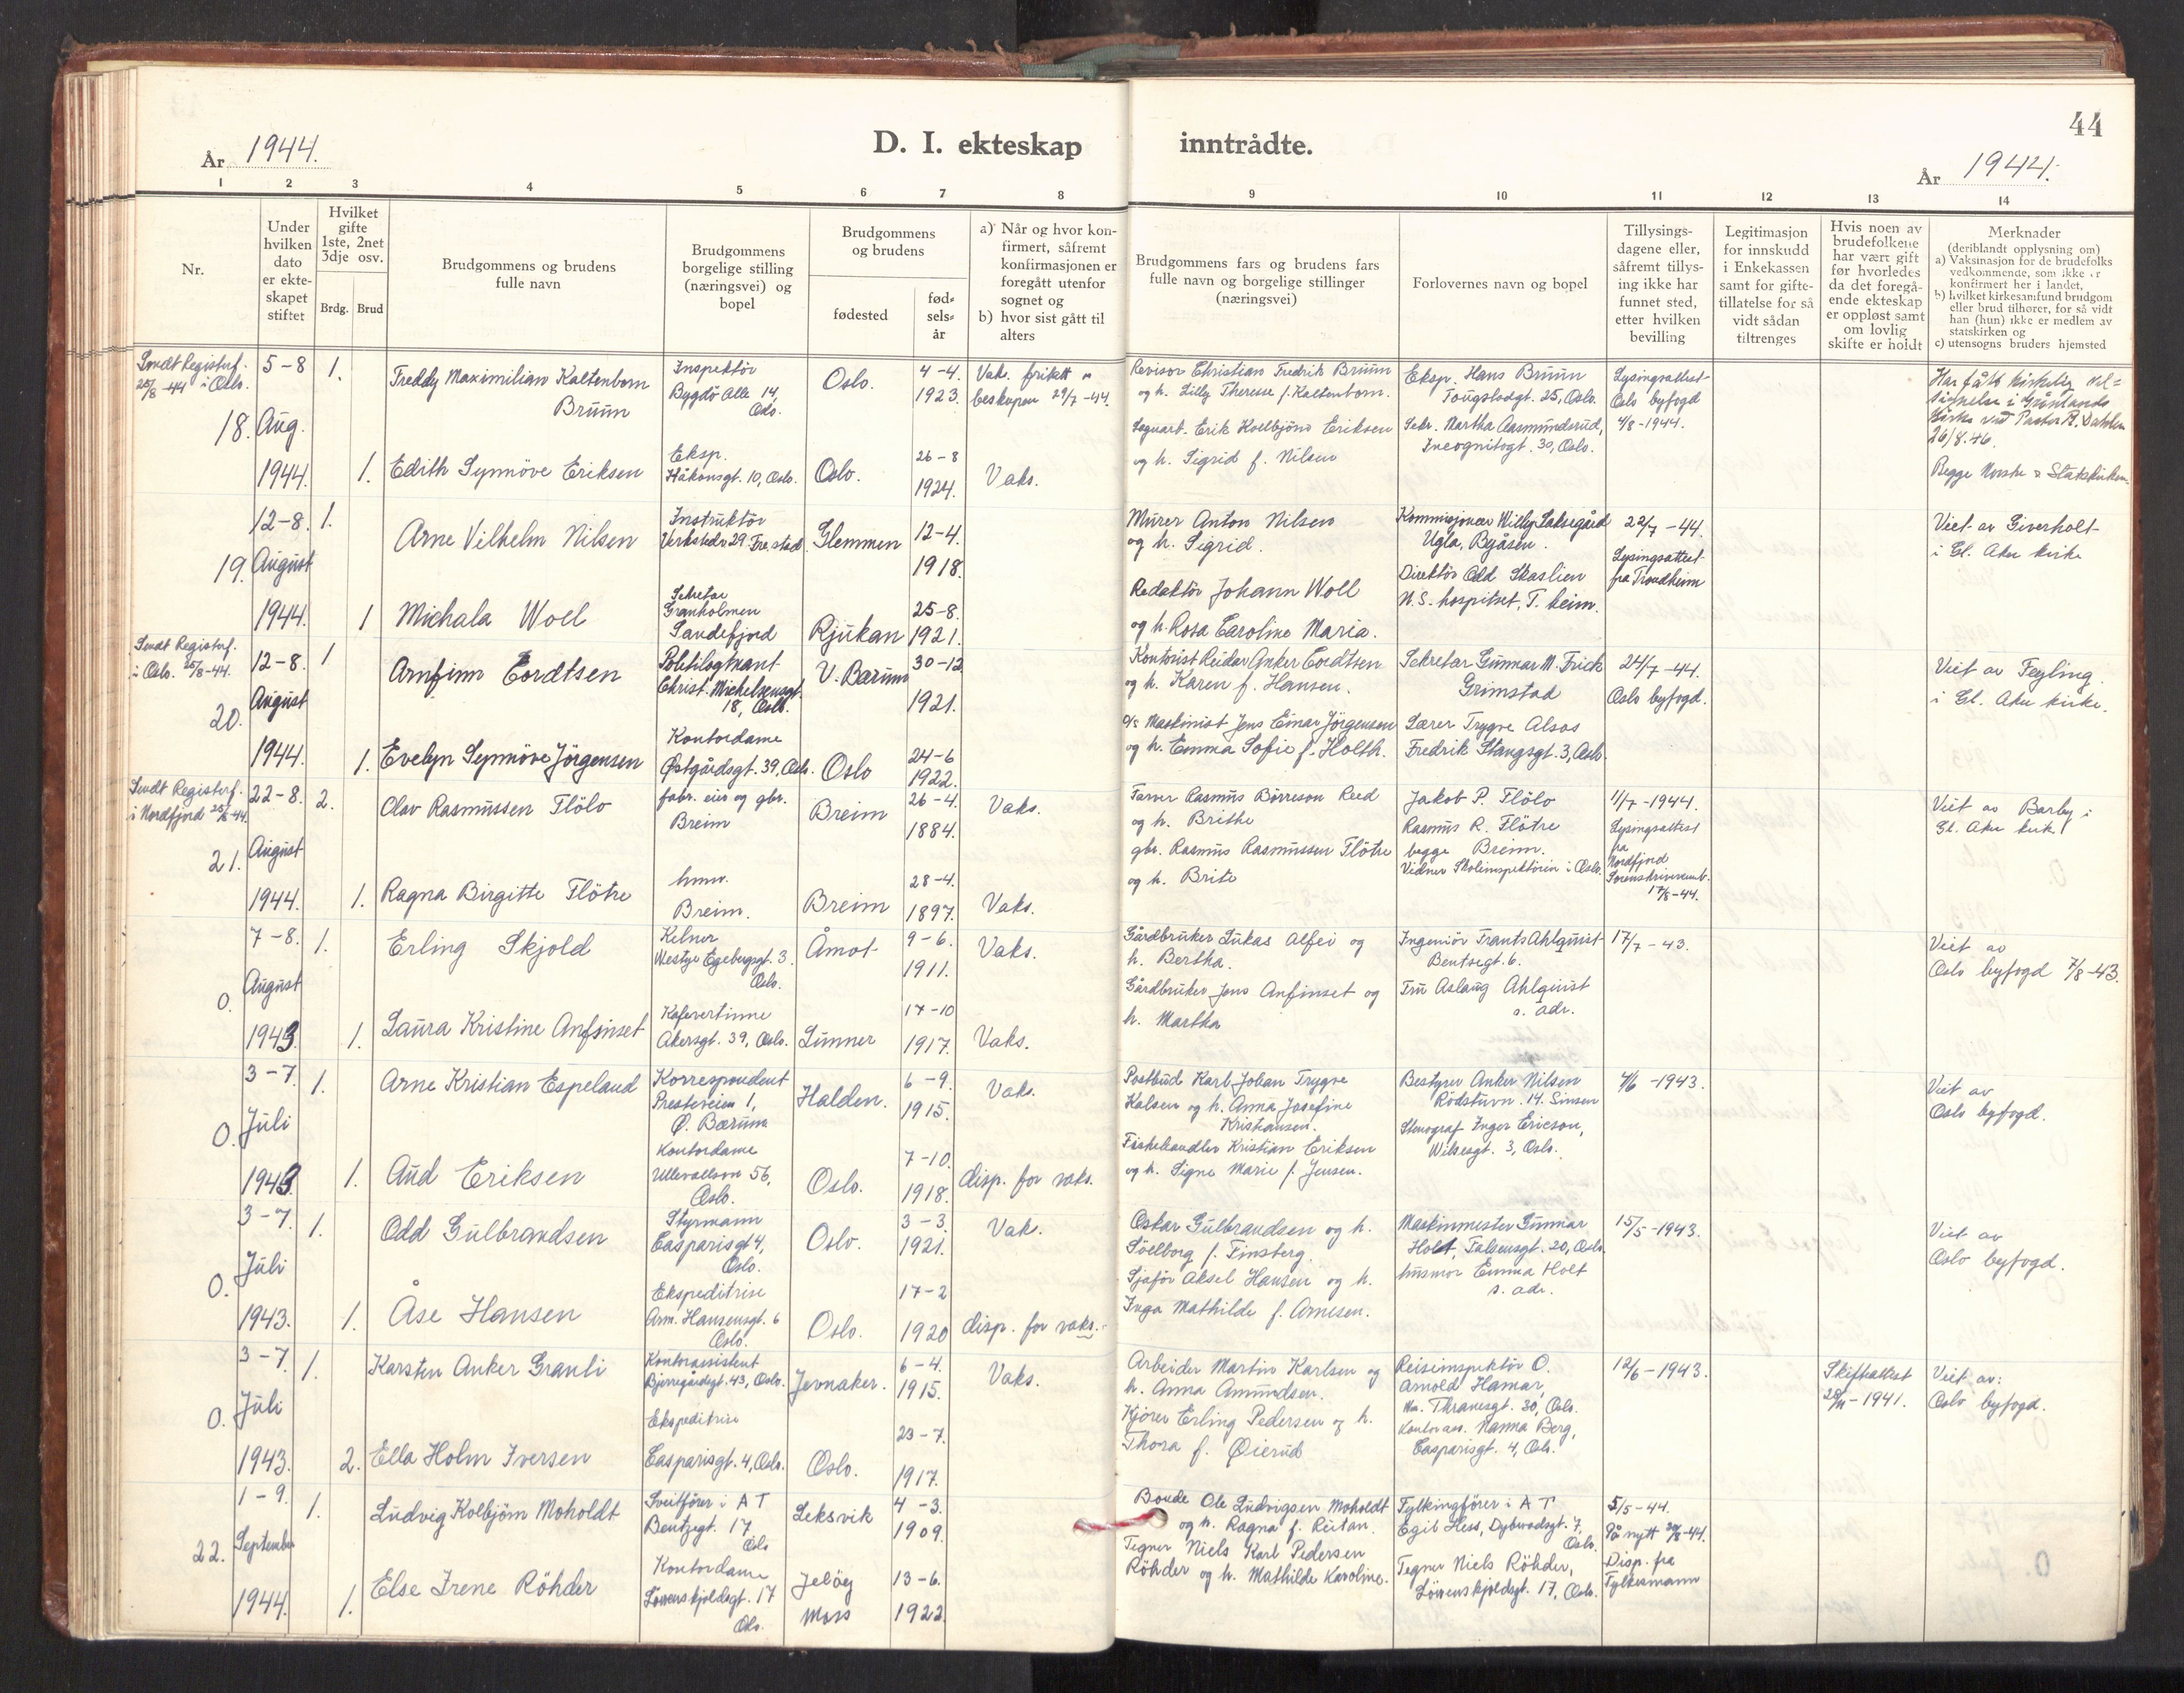 44
År 1944.
D. I. ekteskap inntrådte.
År 1944.
1 2 3 4 5 6 7 8 9 10 11 12 13 14
Nr.
Under hvilken dato er ekte-skapet stiftet
Hvilket gifte 1ste, 2net 3dje osv.
Brdg. Brud
Brudgommens og brudens fulle navn
Brudgommens borgelige stilling (næringsvei) og bopel
Brudgommens og brudens
fødested
fød-sels-år
a) Når og hvor kon-firmert, såfremt konfirmasjonen er foregått utenfor sognet og
b) hvor sist gått til alters
Brudgommens fars og brudens fars fulle navn og borgelige stillinger (næringsvei)
Forlovernes navn og bopel
Tillysings-dagene eller, såfremt tillys-ing ikke har funnet sted, etter hvilken bevilling
Legitimasjon for innskudd i Enkekassen samt for gifte-tillatelse for så vidt sådan tiltrenges
Hvis noen av brudefolkene har vært gift før hvorledes da det foregå-ende ekteskap er oppløst samt om lovlig skifte er holdt
Merknader
(deriblandt opplysning om)
a) Vaksinasjon for de brudefolks vedkommende, som ikke er konfirmert her i landet,
b) hvilket kirkesamfund brudgom eller brud tilhører, for så vidt han (hun) ikke er medlem av statskirken og
c) utensogns bruders hjemsted
Sendt Registerf. 25/8-44 i Oslo.
18. 5-8 Aug. 1944.
1. Freddy Maximilian Kaltenborn Bruun
Inspektör Bygdö Alle 14, Oslo.
Oslo. 4-4. 1923.
Vaks. 29/7-44.
Revisor Christian Fredrik Bruun og h. Lilly Therese f. Kaltenborn.
Eksp. Hans Bruun 25, Oslo.
Lysingsattest Oslo byfogd 4/8-1944.
Har fått kirkelig vel-signelse i Grönlands kirke ved Pastor 26/8.46.
1. Edith Synnöve Eriksen
Eksp. Håkonsgt. 10, Oslo.
Oslo. 26-8 1924.
Vaks.
Erik Kolbjörn Eriksen og h. Sigrid f. Nilsen
Sekr. Martha Aasmundsrud, Incognitogt. 30, Oslo.
Begge Norske & Statskirken.
19. 12-8. August 1944.
1. Arne Vilhelm Nilsen
Instruktör Verkstedv 29 Fre.stad
Glemmen 12-4. 1918.
Murer Anton Nilsen og h. Sigrid.
Kommisjonær Willy Saksegård Ugla, Byåsen.
22/7-44. Lysingsattest fra Trondheim
Viet av Giverholt i Gl. Aker kirke
1 Michala Woll
Sekretær Granholmen Sandefjord
Rjukan 25-8. 1921.
Redaktör Johann Woll og h. Rosa Caroline Maria.
Direktör Odd Skaslien N.S. hospitset, T.heim.
Sendt Registerf. i Oslo. 25/8-44.
20. 12-8. August 1944.
1 Arnfinn Cordtsen
Politilögtnant Christ. Michelsensgt. 18, Oslo.
V. Bærum 30-12 1921.
Kontorist Reidar Anker Cordtsen og h. Karen f. Hansen.
Sekretær Gunnar M. Frick Grimstad
24/7-44. Oslo byfogd.
Viet av Feyling. i Gl. Aker kirke.
1. Evelyn Synnöve Jörgensen
Kontordame Östgårdsgt. 39, Oslo.
Oslo 24-6 1922.
Maskinist Jens Einar Jörgensen og h. Emma Sofie f. Holth.
Lærer Trygve Alsos Fredrik Stangsgt. 3, Oslo.
Sendt Registerf. i Nordfjord 25/8-44.
21. 22-8. August 1944.
2. Olav Rasmussen Flölo
fabr. eier og gbr. Breim
Breim 26-4. 1884.
Vaks.
Farver Rasmus Börreson Reed og h. Brithe
Jakob P. Flölo Rasmus R. Flötre begge Breim.
11/7-1944. Lysingsattest fra Nordfjord Sorenskriveremb. 17/8-44.
Viet av Barby i Gl. Aker kirk.
1. Ragna Birgitte Flötre
hmv. Breim.
Breim 28-4. 1897.
Vaks.
gbr. Rasmus Rasmussen Flötre og h. Brite
Vidner Skoleinspektören i Oslo.
0. 7-8. August 1943.
1. Erling Skjold
Kelner Westye Egebergsgt. 3. Oslo.
Åmot 9-6. 1911.
Vaks.
Gårdbruker Lukas Alfei og h. Bertha.
Ingeniör Frants Ahlquist Bentsegt. 6.
17/7-43.
Viet av Oslo byfogd 7/8-43.
1. Laura Kristine Anfinset
Kafevertinne Akersgt. 39, Oslo.
Lunner 17-10 1917.
Vaks.
Gårdbruker Jens Anfinset og h. Martha
Fru Aslaug Ahlquist s. adr.
0. 3-7. Juli 1943.
1. Arne Kristian Espeland
Korrespondent Presteveien 1, Ö. Bærum
Halden. 6-9. 1915.
Vaks.
Postbud Karl Johan Trygve Kalsen og h. Anna Josefine Kristiansen.
Bestyrer Anker Nilsen Rödstuvn. 14. Sinsen
4/6-1943.
Viet av Oslo byfogd.
1. Aud Eriksen
Kontordame Ullevålsvn 56, Oslo.
Oslo. 7-10. 1918.
disp. for vaks.
Fiskehandler Kristian Eriksen og h. Signe Marie f. Jensen.
Stenograf Inger Ericson, Wilsesgt. 3, Oslo.
0. 3-7. Juli 1943.
1. Odd Gulbrandsen
Styrmann Casparisgt 4, Oslo.
Oslo. 3-3. 1921.
Vak.
Oskar Gulbrandsen og h. Solborg f. Finsberg.
Maskinmester Gunnar Holt, Falsensgt. 20, Oslo.
15/5-1943.
Viet av Oslo byfogd.
1. Åse Hansen
Ekspeditrise Arm. Hansensgt. 6 Oslo.
Oslo. 17-2 1920
disp. for vaks.
Sjåför Aksel Hansen og h. Inga Mathilde f. Arnesen.
husmor Emma Holt s. adr.
0. 3-7. Juli 1943.
1. Karsten Anker Granli
Kontorassistent Bjerregårdsgt. 43, Oslo.
Jevnaker. 6-4. 1915.
Vaks.
Arbeider Martin Karlsen og h. Anna Amundsen.
Reiseinspektör O. Arnold Hamar, M. Thranesgt. 30, Oslo.
12/6-1943.
Skifteattest 1941.
Viet av: Oslo byfogd.
2. Ella Holm Iversen
Ekspeditrise Casparisgt. 4, Oslo.
Oslo. 23-7. 1917.
Kjörer Erling Pedersen og h. Thora f. Öierud
Kontorass. Nanna Berg, Casparisgt. 4, Oslo.
22. 1-9. September 1944.
1. Ludvig Kolbjörn Moholdt
Sveitförer i A T Bentzegt. 17 Oslo
Leksvik 4-3. 1909.
Bonde Ole Ludvigsen Moholdt og h. Ragna f. Reitan.
Fylkingförer i A T Egil Hess, Dybwadsgt. 7, Oslo.
5/5-44. På nytt 30/8-44. Disp. fra Fylkesmann
1. Else Irene Röhder
Kontordame Lövenskjoldsgt. 17 Oslo.
Jelöy Moss 13-6. 1922.
Tegner Niels Karl Pedersen Röhder og h. Mathilde Karoline.
Tegner Niels Röhder, Lövenskjoldsgt. 17, Oslo.